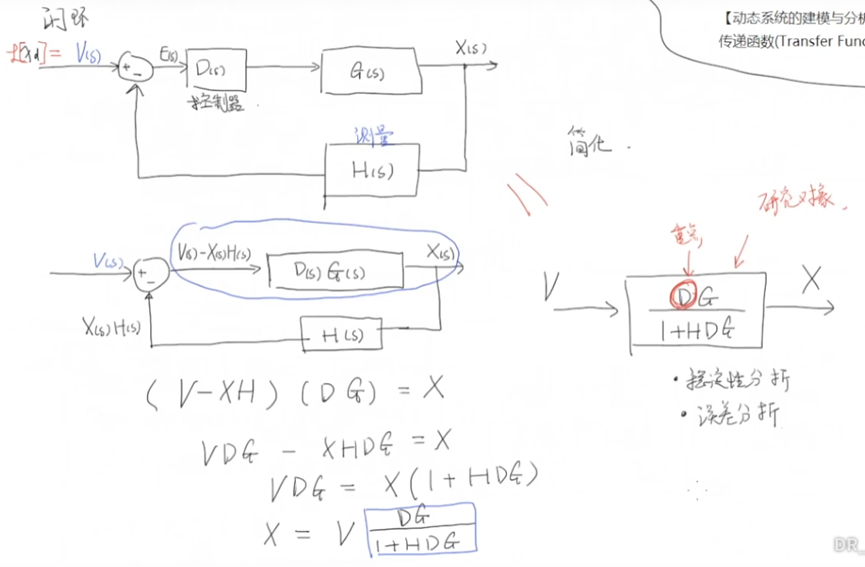 闭环
【动态系统的建模与分析
传递函数(Transfer Func
V(s)
E(s)
D(s)
G(s)
X(s)
控制器
测量
H(s)
简化.
V(s)
V(s)-X(s)H(s)
D(s) G(s)
X(s)
X(s)H(s)
H(s)
研究对象.
V
DG
1+HDG
X
·稳定性分析
·误差分析
(V-XH)(DG) = X
VDG - XHDG = X
VDG = X(1+HDG)
X = V DG
1+HDG
DR_